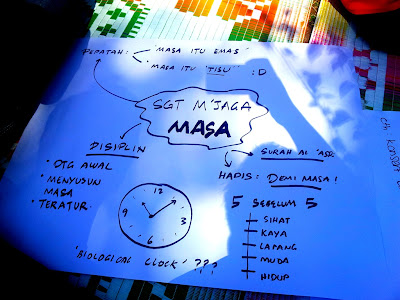 PEPATAH: - MASA ITU EMAS
- MASA ITU "TISU" :D
SGT M'JAGA
MASA
DISIPLIN
• DTG AWAL
• MENYUSUN MASA
• TERATUR
12
3
6
9
"BIOLOGICAL CLOCK" ???
SURAH AL 'ASR
HADIS: DEMI MASA!
5 SEBELUM 5
SIHAT
KAYA
LAPANG
MUDA
HIDUP